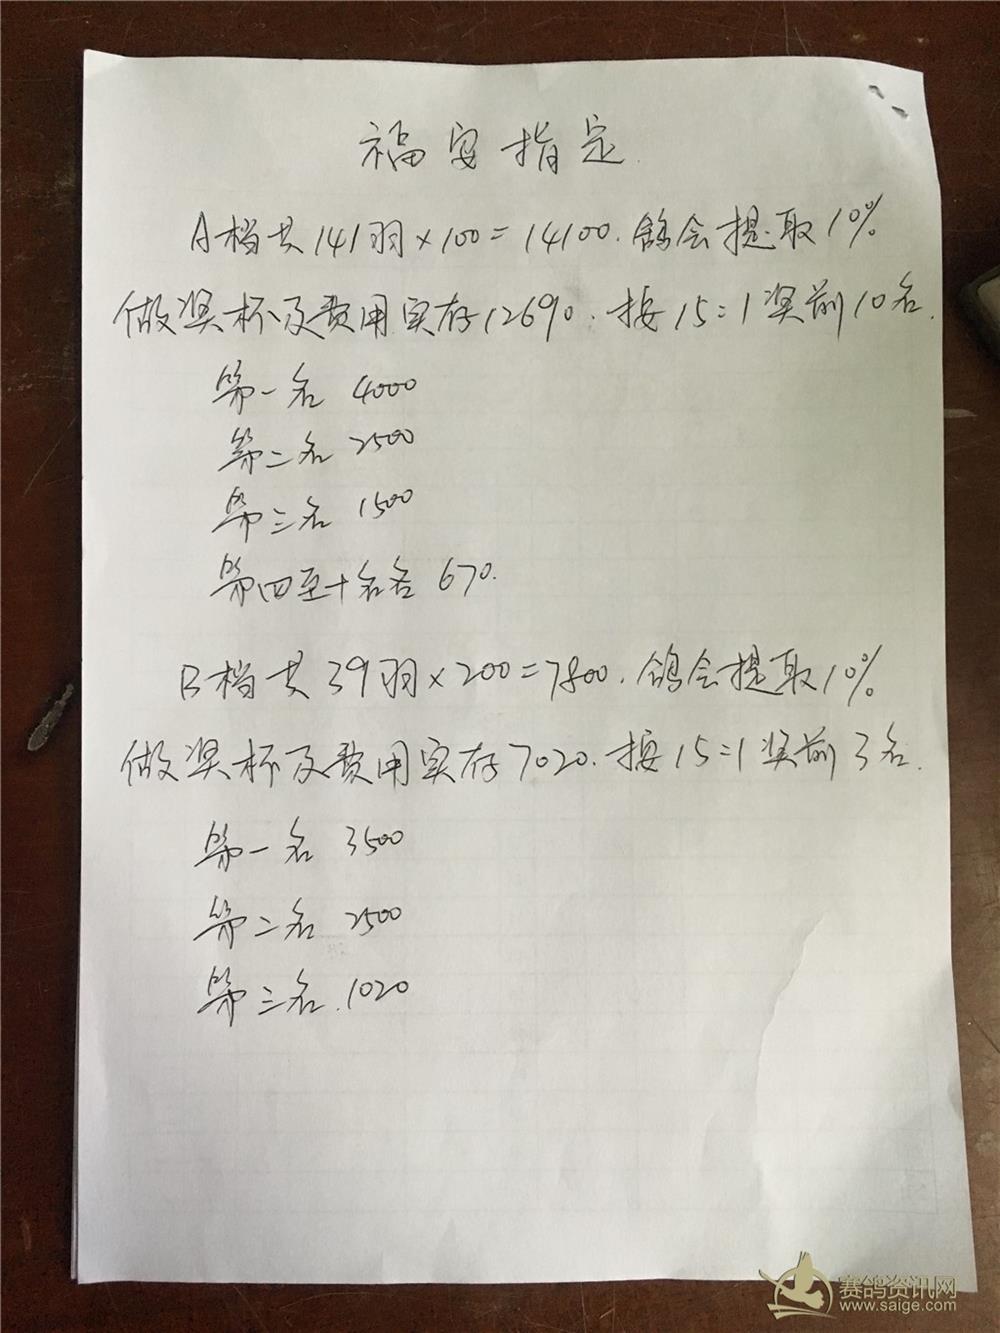 福安指定.
A档共141羽×100=14100.鸽会提取10%
做奖杯及费用实存12690.按15=1奖前10名.
第一名 4000
第二名 2500
第三名 1500
第四至十名各 670.
B档共39羽×200=7800.鸽会提取10%
做奖杯及费用实存7020.按15=1奖前3名.
第一名 3500
第二名 2500
第三名.1020
赛鸽资讯网
www.saige.com